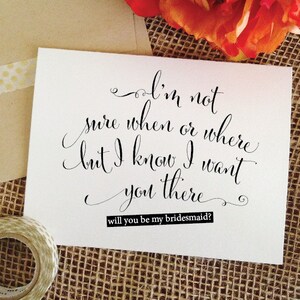 I'm not
sure when or where
but I know I want
you there
will you be my bridesmaid?